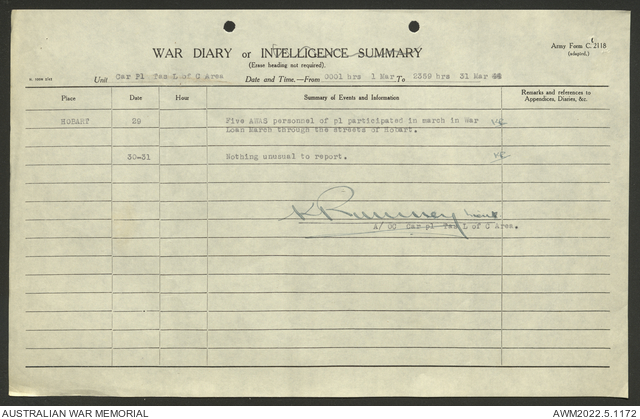 Army Form C. 2118
(adapted.)
WAR DIARY or INTELLIGENCE SUMMARY
(Erase heading not required).
Unit Car Pl Tas L of C Area Date and Time.—From 0001 hrs 1 Mar To 2359 hrs 31 Mar
Place Date Hour Summary of Events and Information Remarks and references to Appendices, Diaries, &c.
HOBART 29 Five AWAS personnel of pl participated in march in War
Loan March through the streets of Hobart.
30-31 Nothing unusual to report.
K Rumney Lieut
A/ OC Car pl Tas L of C Area.
AUSTRALIAN WAR MEMORIAL AWM2022.5.1172